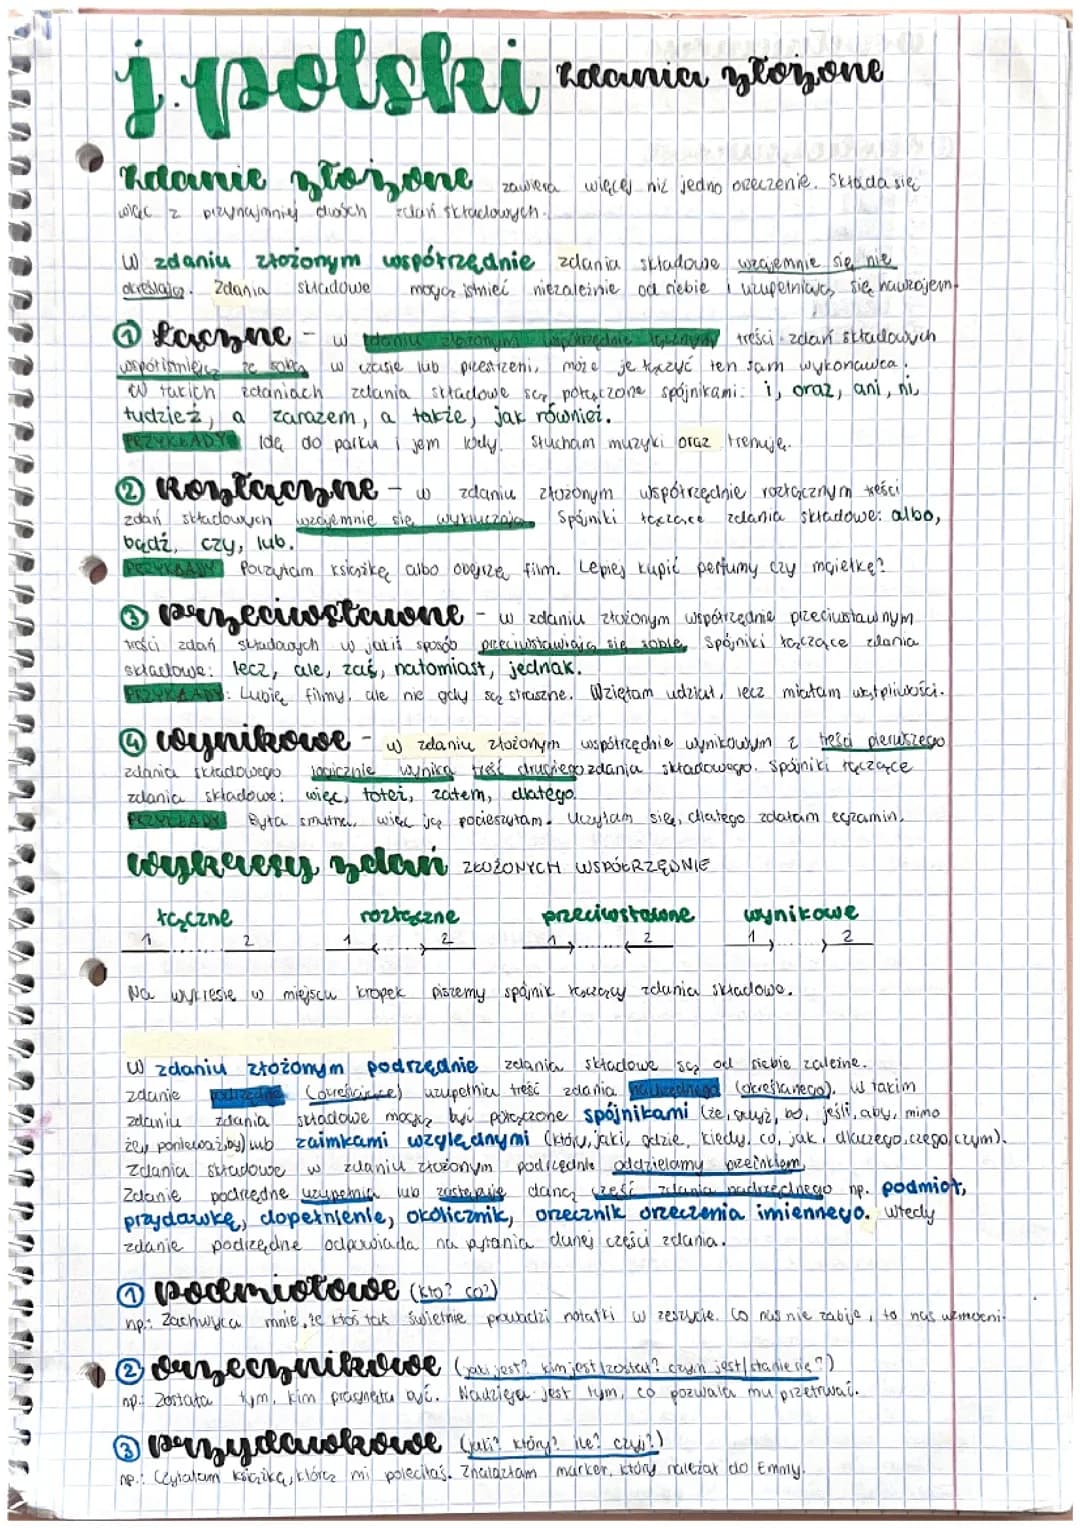 j. polski zdania złożone
zdanie złożone zawiera więcej niż jedno orzeczenie. Składa się
więc z przynajmniej dwóch zdań składowych.
W zdaniu złożonym współrzędnie zdania składowe wzajemnie się nie
określają. Zdania składowe mogą istnieć niezależnie od siebie i uzupełniają się nawzajem.
① Łączne - w zdaniu złożonym współrzędnie łącznym treści zdań składowych
współistnieją ze sobą w czasie lub przestrzeni, może je łączyć ten sam wykonawca.
W takich zdaniach zdania składowe są połączone spójnikami: i, oraz, ani, ni,
tudzież, a zarazem, a także, jak również.
PRZYKŁADY Idę do parku i jem lody. Słucham muzyki oraz trenuję.
② Rozłączne - w zdaniu złożonym współrzędnie rozłącznym treści
zdań składowych wzajemnie się wykluczają. Spójniki łączące zdania składowe: albo,
bądź, czy, lub.
PRZYKŁADY Poczytam książkę albo obejrzę film. Lepiej kupić perfumy czy mgiełkę?
③ przeciwstawne - w zdaniu złożonym współrzędnie przeciwstawnym
treści zdań składowych w jakiś sposób przeciwstawiają się sobie. Spójniki łączące zdania
składowe: lecz, ale, zaś, natomiast, jednak.
PRZYKŁADY: Lubię filmy, ale nie gdy są straszne. Wzięłam udział, lecz miałam wątpliwości.
④ wynikowe - w zdaniu złożonym współrzędnie wynikowym z treści pierwszego
zdania składowego logicznie wynika treść drugiego zdania składowego. Spójniki łączące
zdania składowe: więc, toteż, zatem, dlatego.
PRZYKŁADY Była smutna, więc ją pocieszyłam. Uczyłam się, dlatego zdałam egzamin.
wykresy zdań ZŁOŻONYCH WSPÓŁRZĘDNIE
łączne rozłączne przeciwstawne wynikowe
1 2 1 2 1 2 1 2
Na wykresie w miejscu kropek piszemy spójnik łączący zdania składowe.
W zdaniu złożonym podrzędnie zdania składowe są od siebie zależne.
zdanie podrzędne (określające) uzupełnia treść zdania nadrzędnego (określanego). W takim
zdaniu zdania składowe mogą być połączone spójnikami (że, gdyż, bo, jeśli, aby, mimo
że, ponieważ, by) lub zaimkami względnymi (który, jaki, gdzie, kiedy, co, jak, dlaczego, czego, czym).
Zdania składowe w zdaniu złożonym podrzędnie oddzielamy przecinkiem.
Zdanie podrzędne uzupełnia lub zastępuje daną część zdania nadrzędnego np. podmiot,
przydawkę, dopełnienie, okolicznik, orzecznik orzeczenia imiennego. Wtedy
zdanie podrzędne odpowiada na pytania danej części zdania.
① podmiotowe (kto? co?)
np.: Zachwyca mnie, że ktoś tak świetnie prowadzi notatki w zeszycie. Co nas nie zabije, to nas wzmocni.
② orzecznikowe (jaki jest? kim jest/został? czym jest/stanie się?)
np.: Została tym, kim pragnęła być. Nadzieja jest tym, co pozwala mu przetrwać.
③ przydawkowe (jaki? który? ile? czyj?)
np.: Czytałam książkę, którą mi poleciłaś. Znalazłam marker, który należał do Emmy.